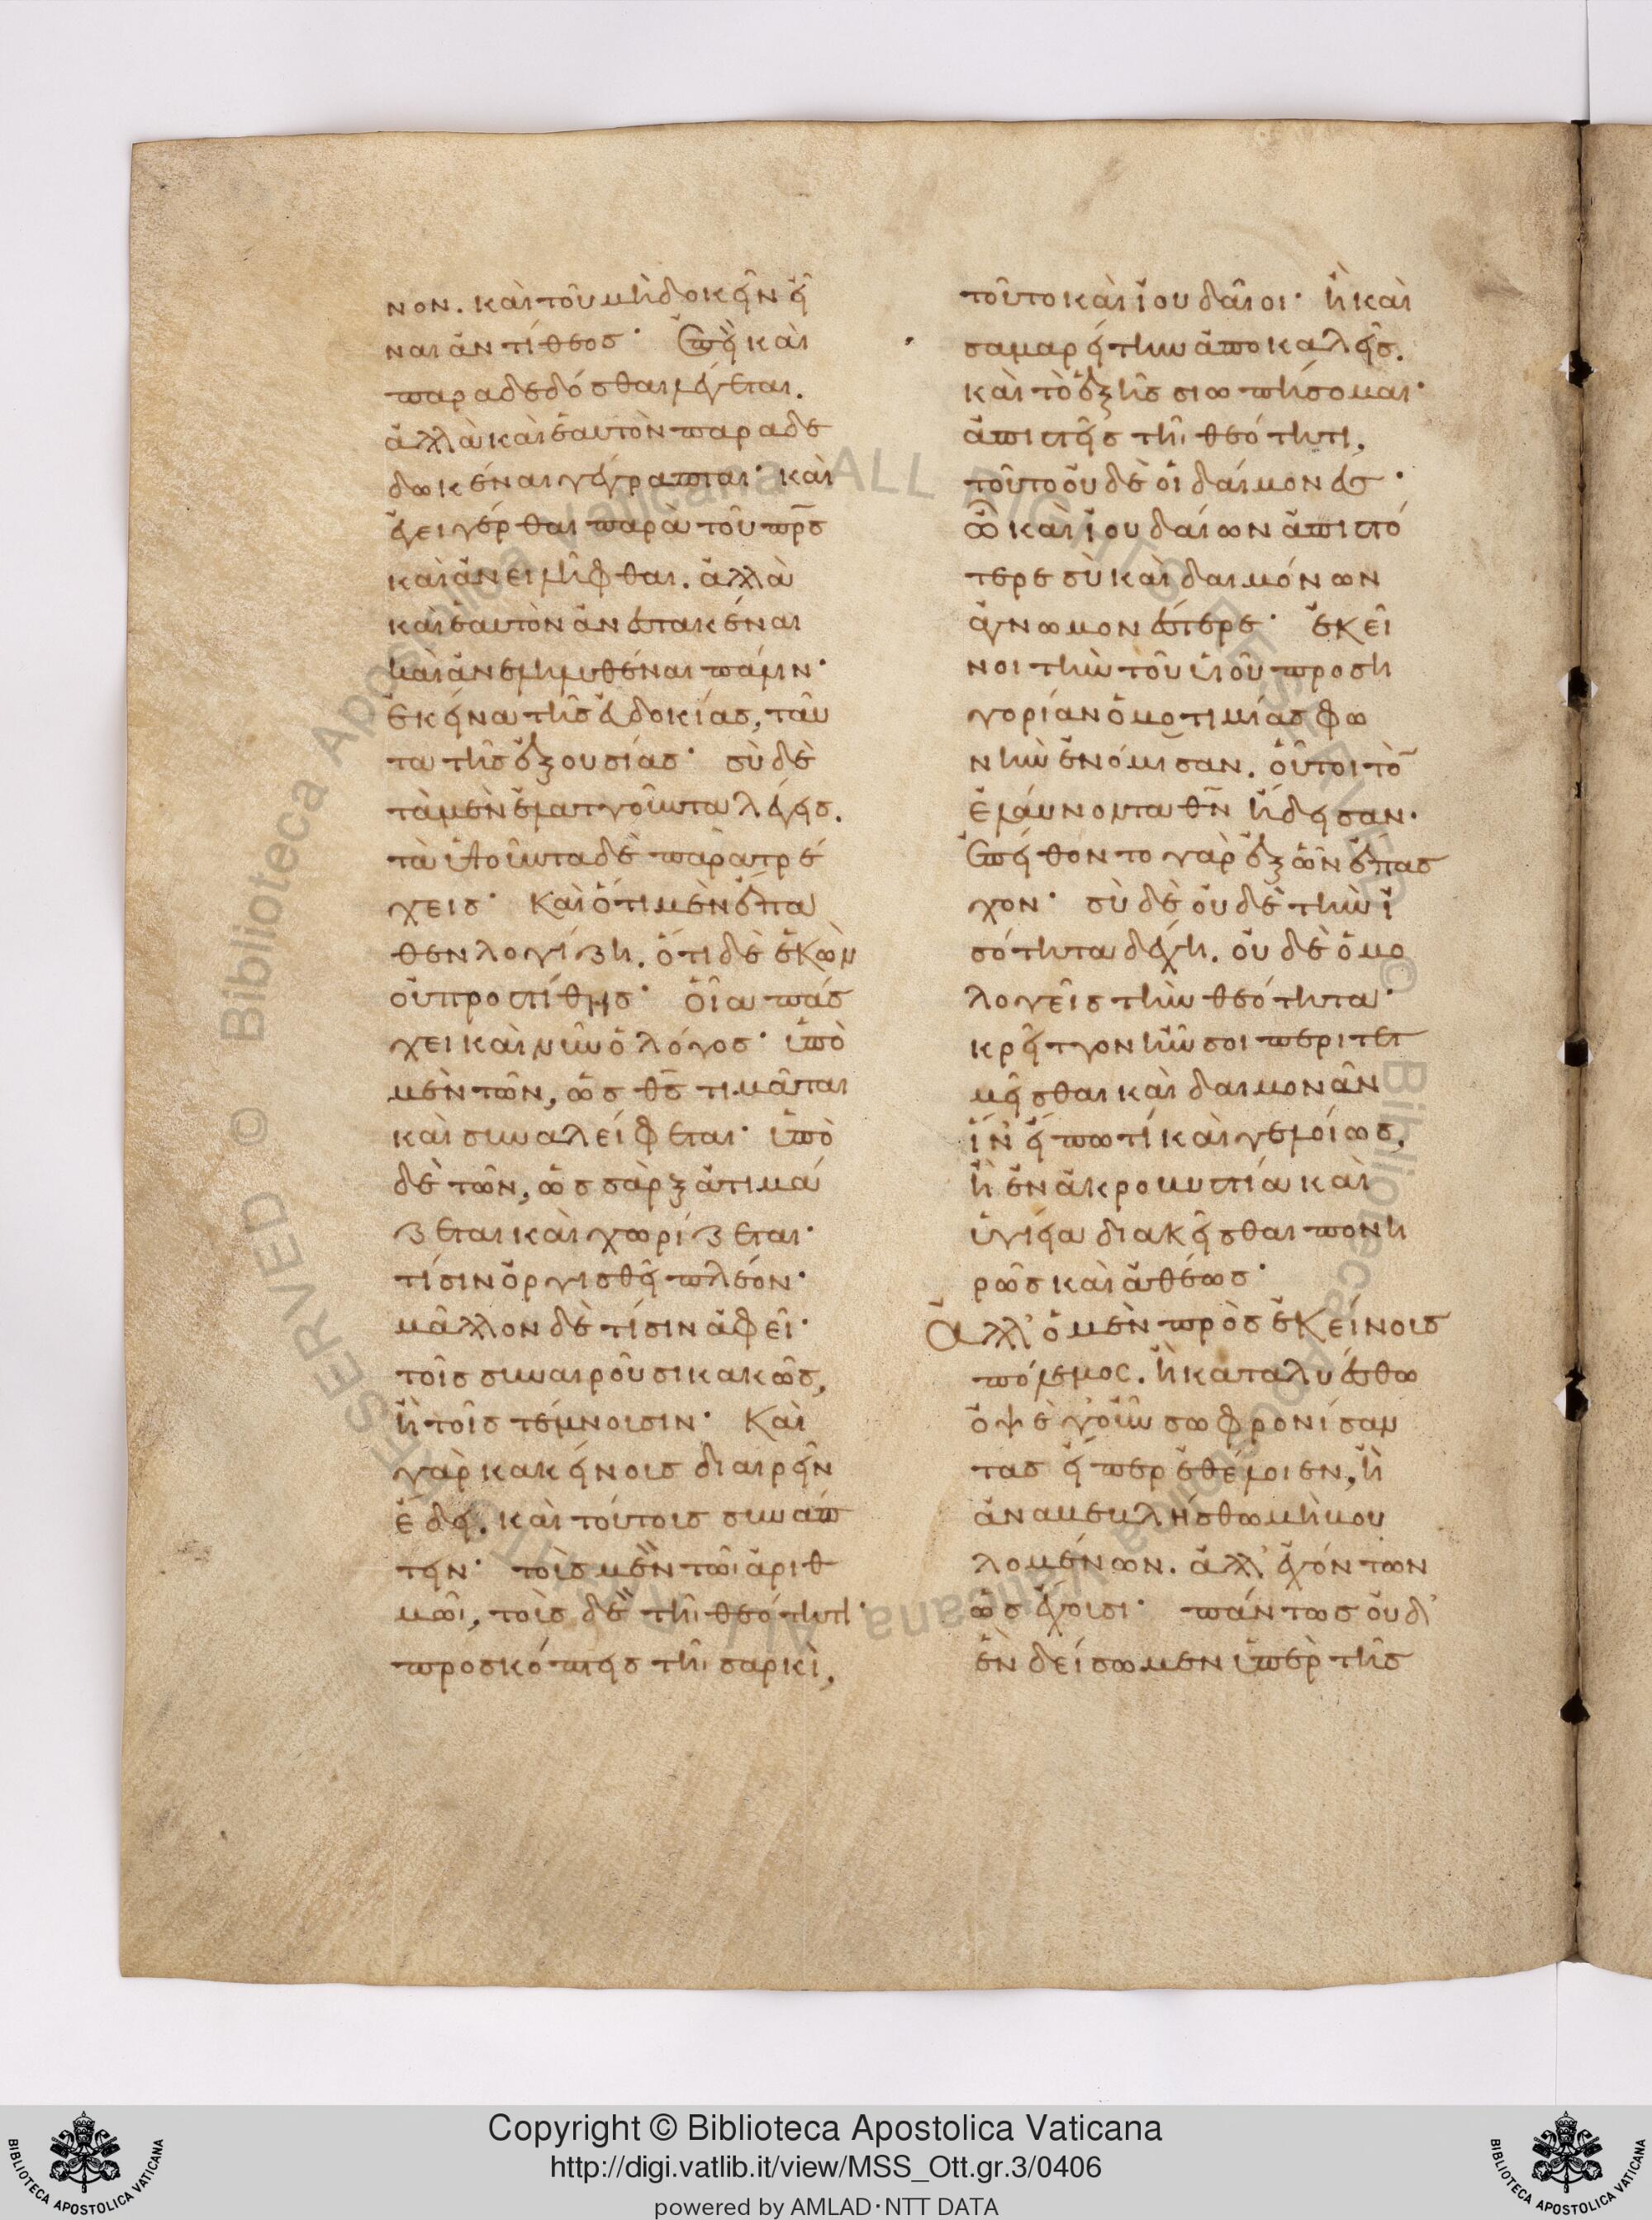 νον. καὶ τοῦ μὴ δοκεῖν εἶ
ναι ἀντίθεος· Ἐπεὶ καὶ
παραδεδόσθαι λέγεται.
ἀλλὰ καὶ ἑαυτὸν παραδε
δωκέναι γέγραπται· καὶ
ἐγειγέρθαι παρὰ τοῦ πρς
καὶ ἀνειλῆφθαι. ἀλλὰ
καὶ ἑαυτὸν ἀνεστακέναι
καὶ ἀνεληλυθέναι πάλιν·
ἐκεῖνα τῆς εὐδοκίας, ταῦ
τα τῆς ἐξουσίας· σὺ δὲ
τὰ μὲν ἐλαττοῦντα λέγεις.
τὰ ὑψοῦντα δὲ παρατρέ
χεις· Καὶ ὅτι μὲν ἔπα
θεν λογίζη. ὅτι δὲ ἑκὼν
οὐ προστίθης· οἷα πάσ
χει καὶ νῦν ὁ λόγος· ὑπὸ
μὲν τῶν, ὡς θς τιμᾶται
καὶ συναλείφεται· ὑπὸ
δὲ τῶν, ὡς σὰρξ ἀτιμά
ζεται καὶ χωρίζεται·
τίσιν ὀργισθῇ πλέον·
μᾶλλον δὲ τίσιν ἀφεῖ·
τοῖς συναιροῦσι κακῶς,
ἢ τοῖς τέμνουσιν· Καὶ
γὰρ κακείνοις διαιρεῖν
ἔδει. καὶ τούτοις συνάπ
τειν· τοῖς μὲν τῶι ἀριθ
μῶι, τοῖς δὲ τῆι θεότητι·
προσκόπτεις τῆι σαρκὶ,
τοῦτο καὶ ἰουδαῖοι· ἢ καὶ
σαμαρείτην ἀποκαλεῖς.
καὶ τὸ ἑξῆς σιωπήσομαι·
ἀπιστεῖς τῆι θεότητι.
τοῦτο οὐδὲ οἱ δαίμονες·
ὦ καὶ ἰουδαίων ἀπιστό
τερε σὺ καὶ δαιμόνων
ἀγνωμονέστερε· ἐκεῖ
νοι τὴν τοῦ υἱοῦ προση
γορίαν ὁμοτιμίας φω
νὴν ἐνόμισαν. οὗτοι τὸ
ἐλαύνοντα θν ἤδεισαν.
Ἐπείθοντο γὰρ ἐξ ὧν ἔπασ
χον· σὺ δὲ οὐδὲ τὴν ἰ
σότητα δέχη. οὐδὲ ὁμο
λογεῖς τὴν θεότητα·
κρεῖττον ἦν σοι περιτετ
μῆσθαι καὶ δαιμονᾶν
ἵν' εἴπω τί καὶ γελοίως,
ἢ ἐν ἀκροβυστία καὶ
ὑγιεία διακεῖσθαι πονη
ρῶς καὶ ἀθέως·
Ἀλλ' ὁ μὲν πρὸς ἐκείνοις
πόλεμος. ἢ καταλυέσθω
ὀψὲ γοῦν σωφρονίσαν
τας εἴπερ ἐθέλοιεν, ἢ
ἀναβεβλήσθω μὴ βου
λομένων. ἀλλ' ἐχόντων
ὡς ἔχουσι· πάντως οὐδ'
ἓν δείσωμεν ὑπὲρ τῆς
Copyright © Biblioteca Apostolica Vaticana
http://digi.vatlib.it/view/MSS_Ott.gr.3/0406
powered by AMLAD·NTT DATA